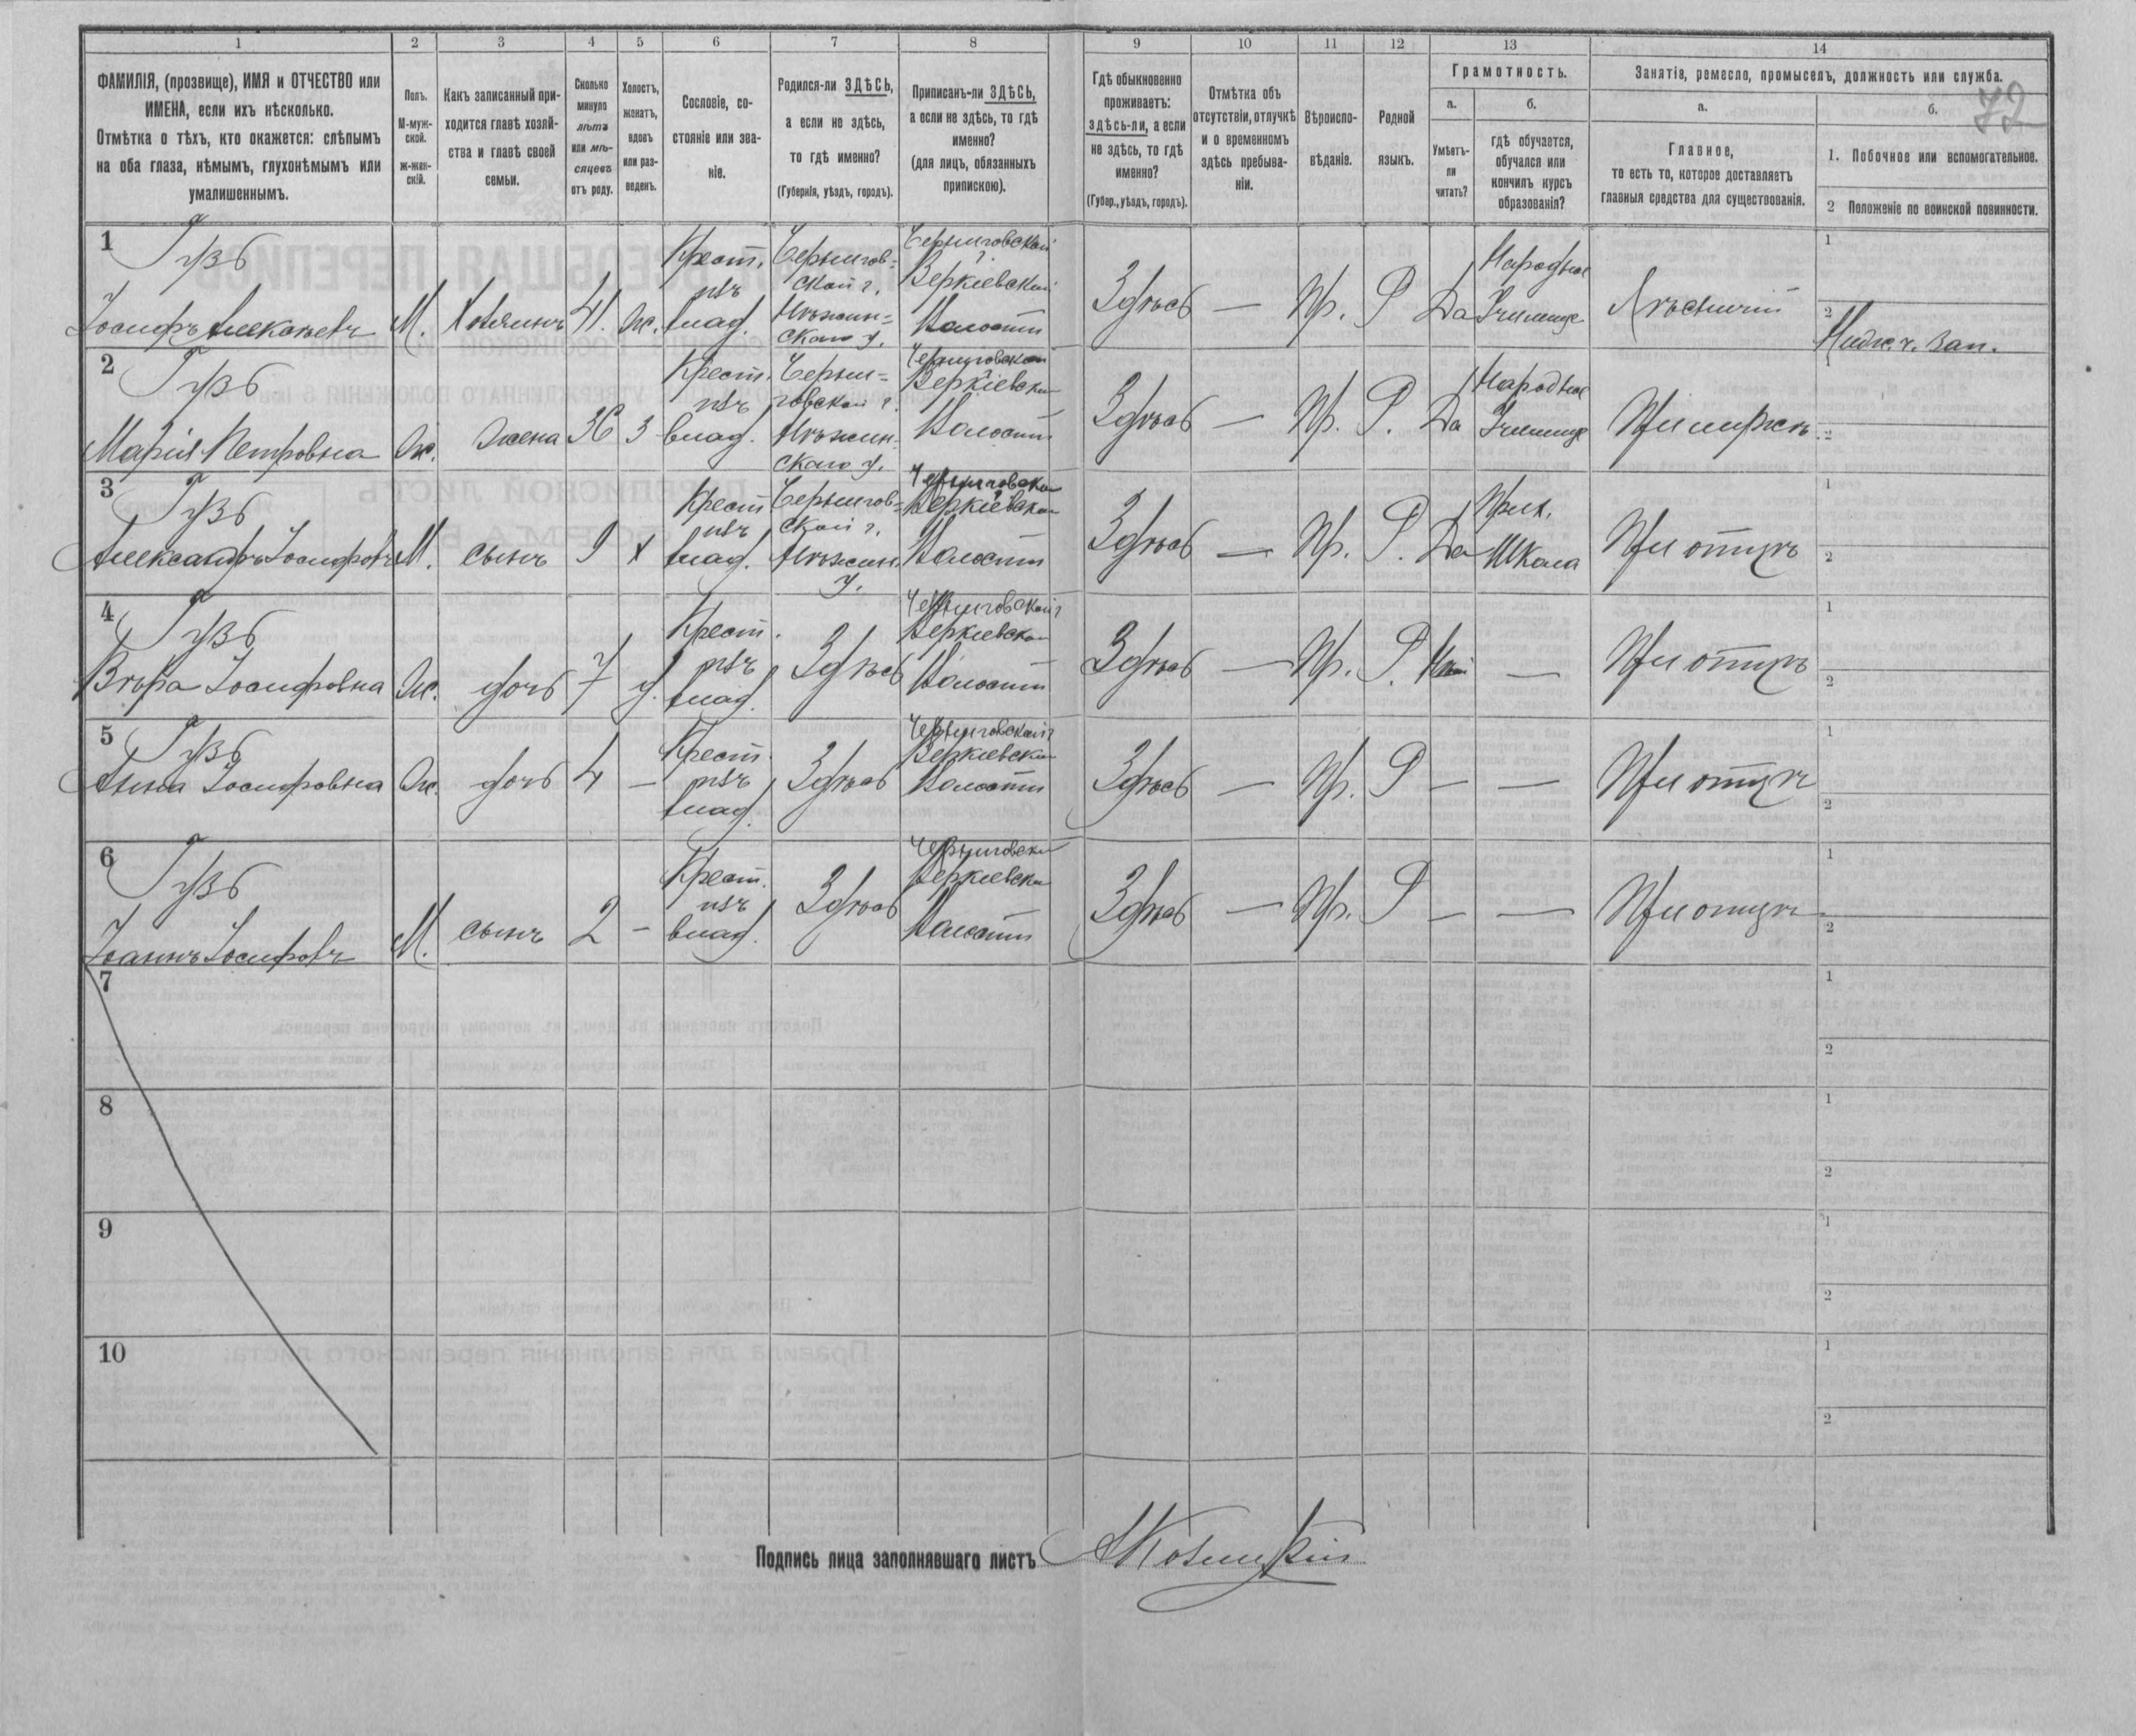 1 2 3 4 5 6 7 8 9 10 11 12 13 14
72
ФАМИЛІЯ, (прозвище), ИМЯ и ОТЧЕСТВО или
ИМЕНА, если ихъ нѣсколько.
Отмѣтка о тѣхъ, кто окажется: слѣпымъ
на оба глаза, нѣмымъ, глухонѣмымъ или
умалишеннымъ.
Полъ.
М-муж-
ской.
ж-жен-
скій.
Какъ записанный при-
ходится главѣ хозяй-
ства и главѣ своей
семьи.
Сколько
минуло
лѣтъ
или мѣ-
сяцевъ
отъ роду.
Холостъ,
женатъ,
вдовъ
или раз-
веденъ.
Сословіе, со-
стояніе или зва-
ніе.
Родился-ли ЗДѢСЬ,
а если не здѣсь,
то гдѣ именно?
(Губернія, уѣздъ, городъ).
Приписанъ-ли ЗДѢСЬ,
а если не здѣсь, то гдѣ
именно?
(для лицъ, обязанныхъ
припискою).
Гдѣ обыкновенно
проживаетъ:
здѣсь-ли, а если
не здѣсь, то гдѣ
именно?
(Губер., уѣздъ, городъ).
Отмѣтка объ
отсутствіи, отлучкѣ
и о временномъ
здѣсь пребыва-
ніи.
Вѣроиспо-
вѣданіе.
Родной
языкъ.
Грамотность.
а.
Умѣетъ-
ли
читать?
б.
гдѣ обучается,
обучался или
кончилъ курсъ
образованія?
Занятіе, ремесло, промыселъ, должность или служба.
а.
Главное,
то есть то, которое доставляетъ
главныя средства для существованія.
б.
1. Побочное или вспомогательное.
2 Положеніе по воинской повинности.
1
Гузь
Іосифъ Алексѣевъ
М.
Хозяинъ
41.
Ж.
Крест.
изъ
влад.
Чернигов-
ской г.
Нѣжин-
скаго у.
Черниговской
г.
Веркіевской
Волости
Здѣсь
—
Пр.
Р
Да
Народное
Училище
Лѣсничій
1
2
2
Гузь
Марія Петровна
Ж.
Жена
36
З
Крест.
изъ
влад.
Черни-
говской г.
Нѣжин-
скаго у.
Черниговской
г.
Веркіевской
Волости
Здѣсь
—
Пр.
Р.
Да
Народное
Училище
При мужѣ
1
2
3
Гузь
Александръ Іосифовъ
М.
сынъ
9
х
Крест
изъ
влад.
Чернигов-
ской г.
Нѣжин.
у.
Черниговской
г.
Веркіевской
Волости
Здѣсь
—
Пр.
Р.
Да
Прих.
Школа
При отцѣ
1
2
4
Гузь
Вѣра Іосифовна
Ж.
дочь
7
д.
Крест.
изъ
влад.
Здѣсь
Черниговской г
Веркіевской
Волости
Здѣсь
—
Пр.
Р.
—
При отцѣ
1
2
5
Гузь
Анна Іосифовна
Ж.
дочь
4
—
Крест.
изъ
влад.
Здѣсь
Черниговской г
Веркіевской
Волости
Здѣсь
—
Пр.
Р
—
—
При отцѣ
1
2
6
Гузь
Іоаннъ Іосифовъ
М.
сынъ
2
—
Крест.
изъ
влад.
Здѣсь
Черниговской
Веркіевской
Волости
Здѣсь
—
Пр.
Р
—
—
При отцѣ
1
2
7
1
2
8
1
2
9
1
2
10
1
2
Подпись лица заполнявшаго листъ